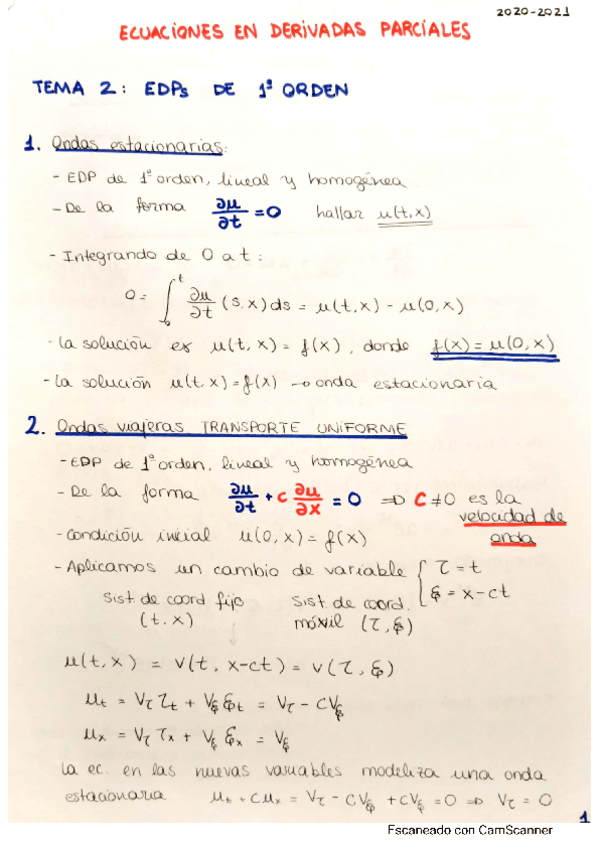 2020-2021
ECUACIONES EN DERIVADAS PARCIALES
TEMA 2: EDPs DE 1º ORDEN
1. Ondas estacionarias:
- EDP de 1º orden, lineal y homogénea
- De la forma ∂u/∂t = 0 hallar u(t,x)
- Integrando de 0 a t:
0 = ∫₀ᵗ ∂u/∂t (s,x) ds = u(t,x) - u(0,x)
- La solución es u(t,x) = f(x), donde f(x) = u(0,x)
- La solución u(t,x) = f(x) → onda estacionaria
2. Ondas viajeras TRANSPORTE UNIFORME
- EDP de 1º orden, lineal y homogénea
- De la forma ∂u/∂t + c ∂u/∂x = 0 ⇒ c ≠ 0 es la
velocidad de
onda
- Condición inicial u(0,x) = f(x)
- Aplicamos un cambio de variable { τ = t
ξ = x - ct
Sist. de coord fijo Sist. de coord.
(t,x) móvil (τ,ξ)
u(t,x) = v(t, x-ct) = v(τ,ξ)
u_t = v_τ τ_t + v_ξ ξ_t = v_τ - c v_ξ
u_x = v_τ τ_x + v_ξ ξ_x = v_ξ
la ec. en las nuevas variables modeliza una onda
estacionaria u_t + c u_x = v_τ - c v_ξ + c v_ξ = 0 ⇒ v_τ = 0
1
Escaneado con CamScanner